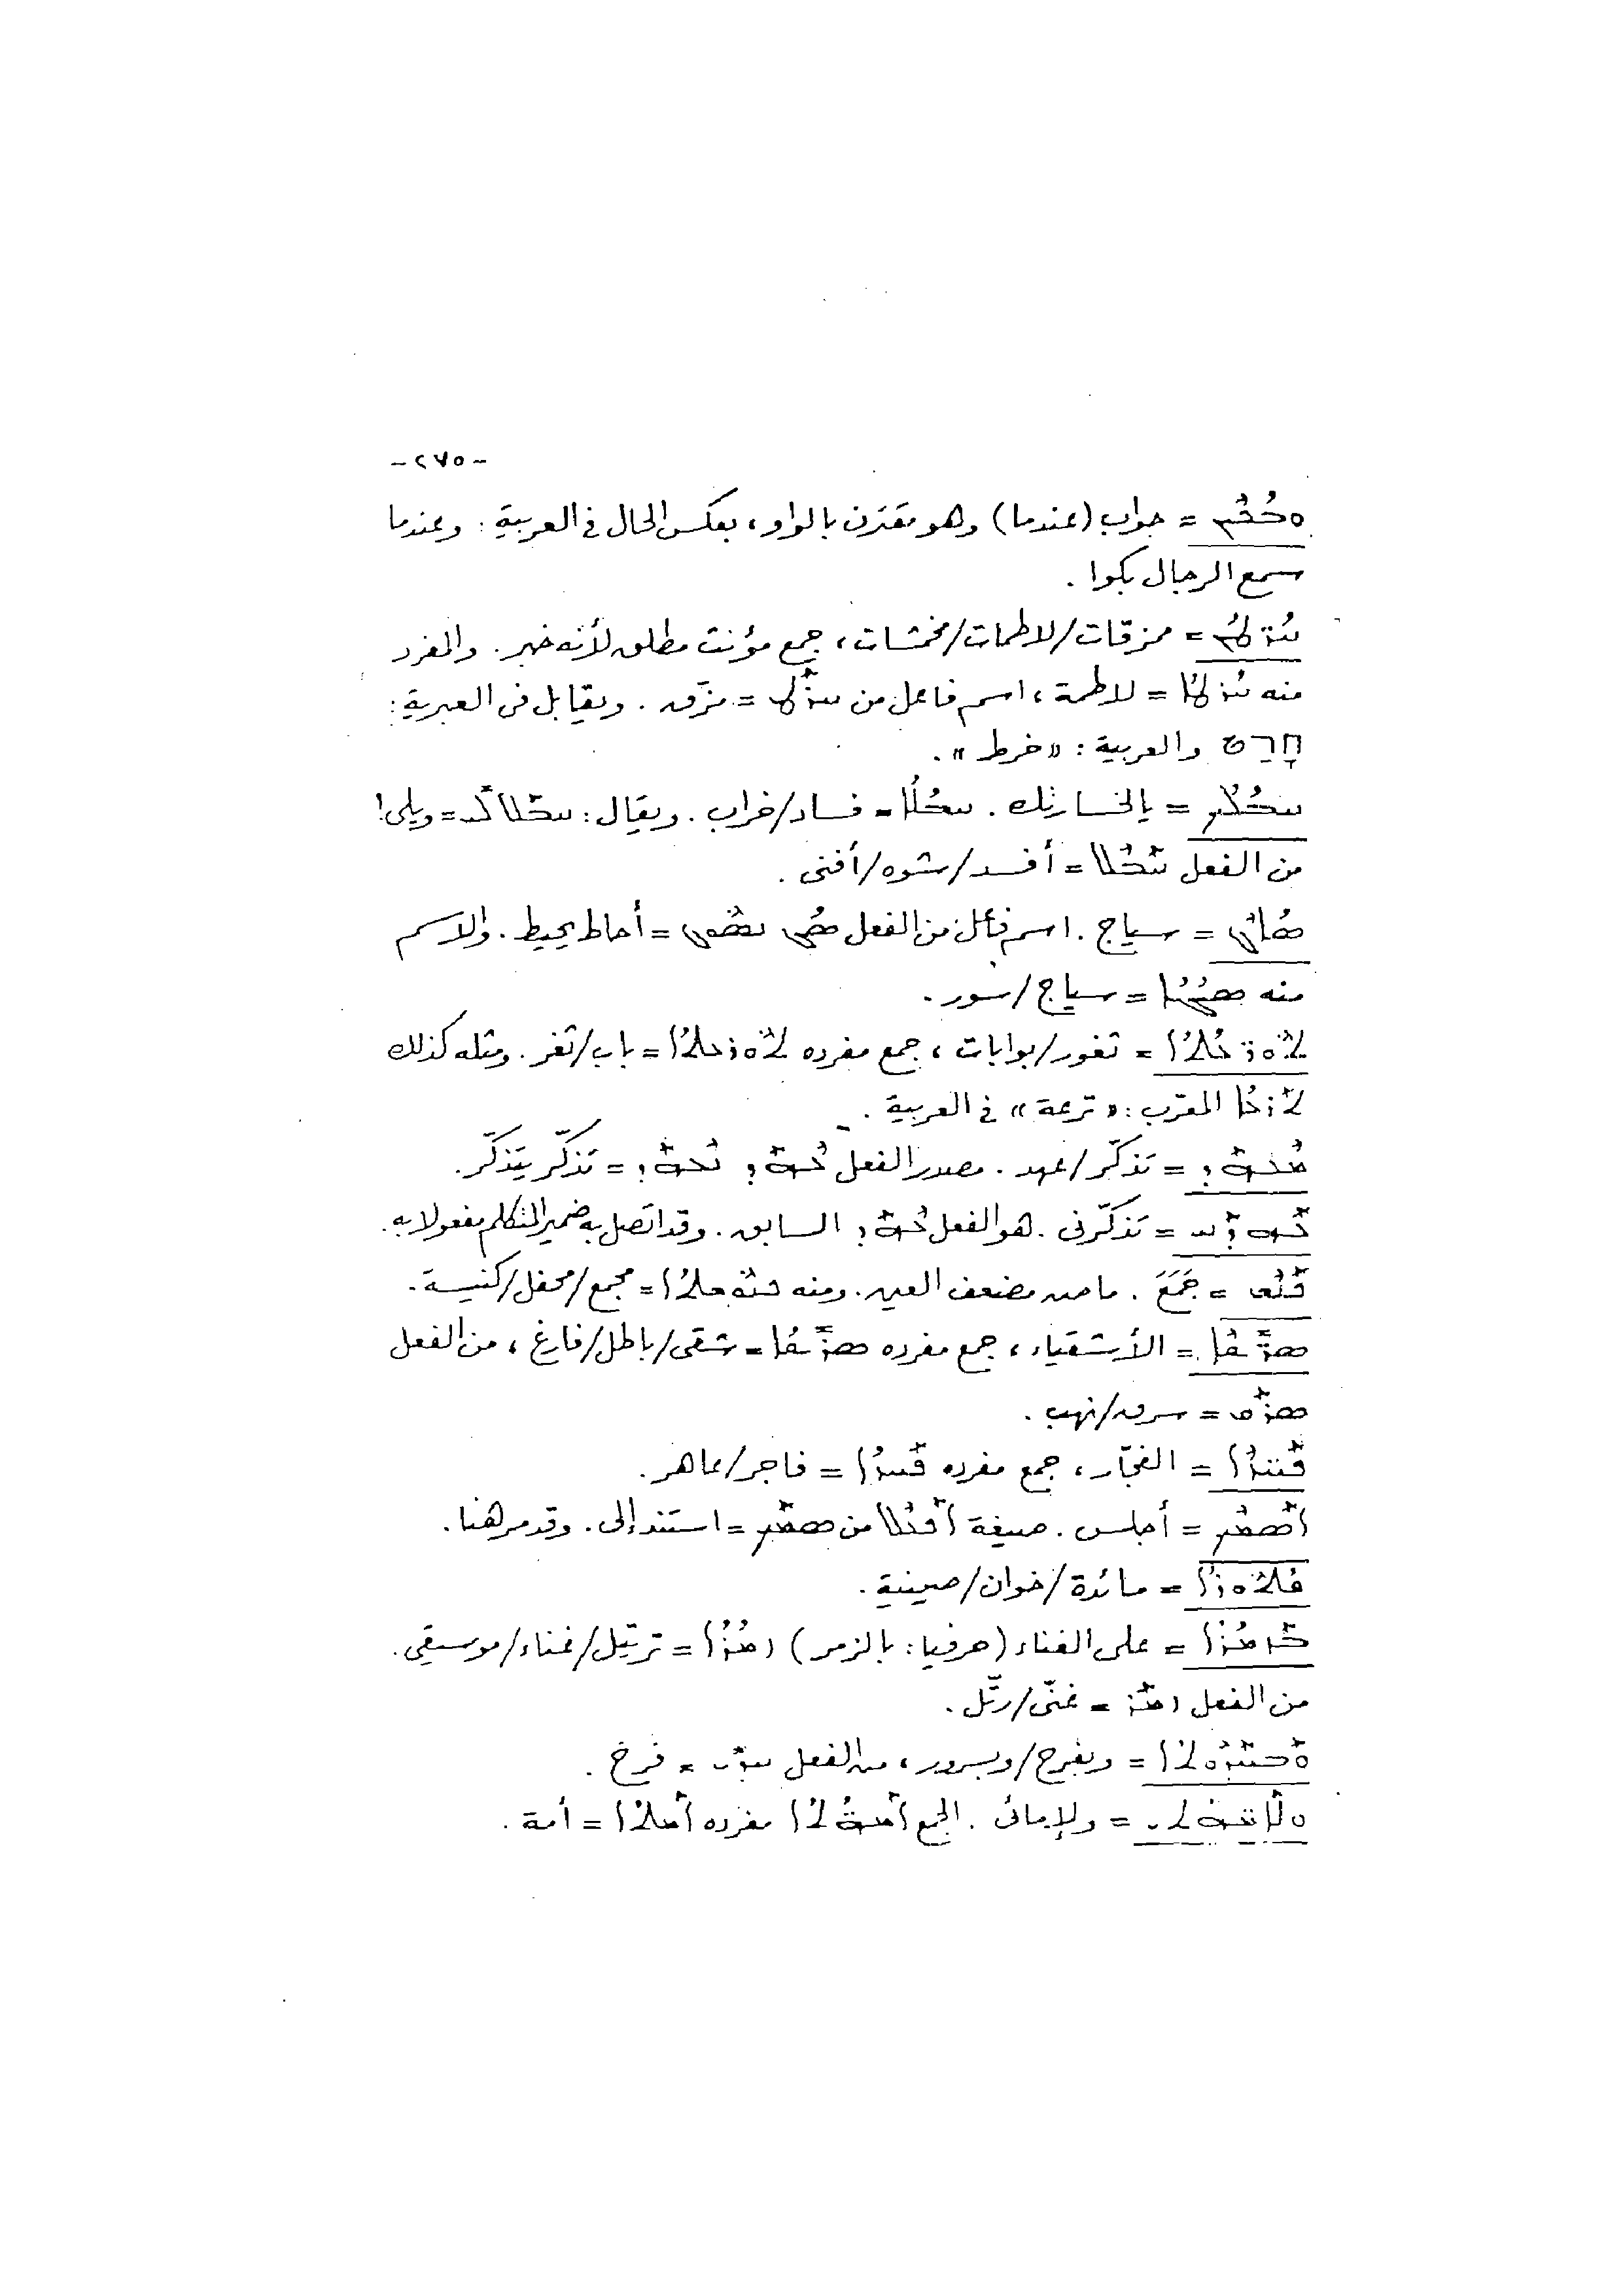 -٢٧٥-
ܘܒܟܝܢ = جواب (عندما) وهو مقترن بالواو، بعكس الحال في العربية: وعندما
سمع الرجال بكوا.
ܚܪ̈ܛܢ = ممزقات/لاطمات/مخمشات، جمع مؤنث مطلق لأنه خبر. والمفرد
منه ܚܪܛܐ = لاطمة، اسم فاعل من ܚܪܛ = مزّق. ويقابل في العبرية:
חָרַט والعربية: «خرط».
ܚܒܠܟܝ = يالخسارتك. ܚܒܠܐ = فساد/خراب. ويقال: ܚܒܠ ܠܝ = ويلي!
من الفعل ܚܒܠ = أفسد/شوه/أفنى.
ܣܐܓ = سياج. اسم فاعل من الفعل ܣܓ ܢܣܘܓ = أحاط يحيط. والاسم
منه ܣܝܓܐ = سياج/سور.
ܬܘܪ̈ܥܬܐ = ثغور/بوابات، جمع مفرده ܬܘܪܥܬܐ = باب/ثغر. ومثله كذلك
ܬܪܥܐ المعرّب: «ترعة» في العربية.
= تذكّر/عهد. مصدر الفعل = تذكّر يتذكّر.
= تذكّرني. هو الفعل السابق. وقد اتصل به ضمير المتكلم مفعولا به.
ܟܢܫ = جَمَعَ. ماض مضعف العين. ومنه ܟܢܘܫܬܐ = مجمع/محفل/كنيسة.
ܣܪ̈ܝܩܐ = الأشقياء، جمع مفرده ܣܪܝܩܐ = شقي/باطل/فارغ، من الفعل
ܣܪܩ = سرق/نهب.
ܦܚ̈ܙܐ = الفجّار، جمع مفرده ܦܚܙܐ = فاجر/عاهر.
ܐܣܡܟ = أجلس. صيغة من ܣܡܟ = استند إلى. وقد مر هنا.
ܦܬܘܪܐ = مائدة/خوان/صينية.
ܒܙܡܪܐ = على الغناء (حرفيا: بالزمر) ܙܡܪܐ = ترتيل/غناء/موسيقى.
من الفعل ܙܡܪ = غنّى/رتّل.
ܘܒܚܕܘܬܐ = وبفرح/وبسرور، من الفعل ܚܕܝ = فرح.
ܘܠܐܡ̈ܗܬܝ = ولإمائي. الجمع ܐܡ̈ܗܬܐ مفرده ܐܡܬܐ = أمة.